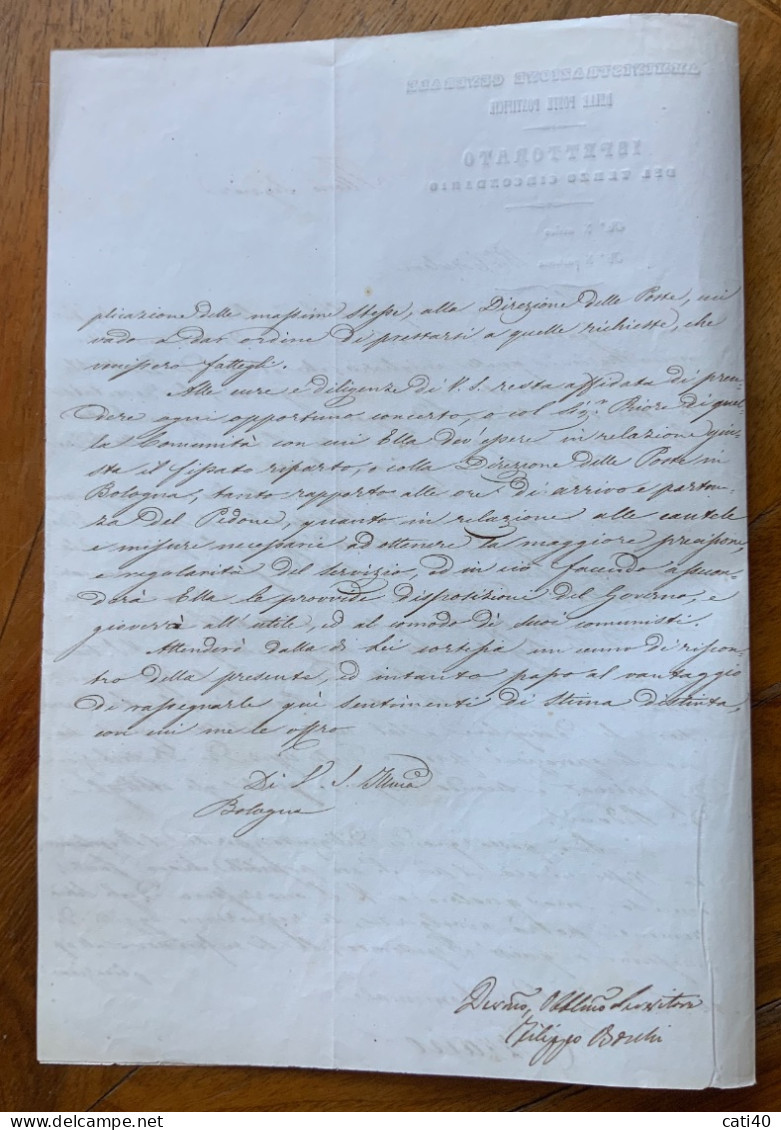 AMMINISTRAZIONE GENERALE
DELLE POSTE PONTIFICIE
ISPETTORATO
DEL TERZO CIRCONDARIO
plicazione delle massime stesse, alla Direzione delle Poste, cui
vado a dar ordine di prestarsi a quelle richieste, che
venissero fattegli.
Alle cure e diligenze di V. S. resta affidata di pren-
dere ogni opportuno concerto, o col Sig.r Priore di quel-
la Comunità con cui Ella dev'essere in relazione giu-
sta il fissato riparto, o colla Direzione delle Poste in
Bologna, tanto rapporto alle ore di arrivo e parten-
za del Pedone, quanto in relazione alle cautele
e misure necessarie ad ottenere la maggiore precisione,
e regolarità del servizio, ed in ciò facendo assecon-
derà Ella le provvide disposizioni del Governo, e
gioverà all'utile, ed al comodo di suoi comunisti.
Attenderò dalla di Lei cortesia un cenno di riscon-
tro della presente, ed intanto passo al vantaggio
di rassegnarle qui sentimenti di stima distinta,
con cui me le offro
Di V. S. Illma
Bologna
Devmo, Obblmo Servitore
Filippo Boschi
cati40